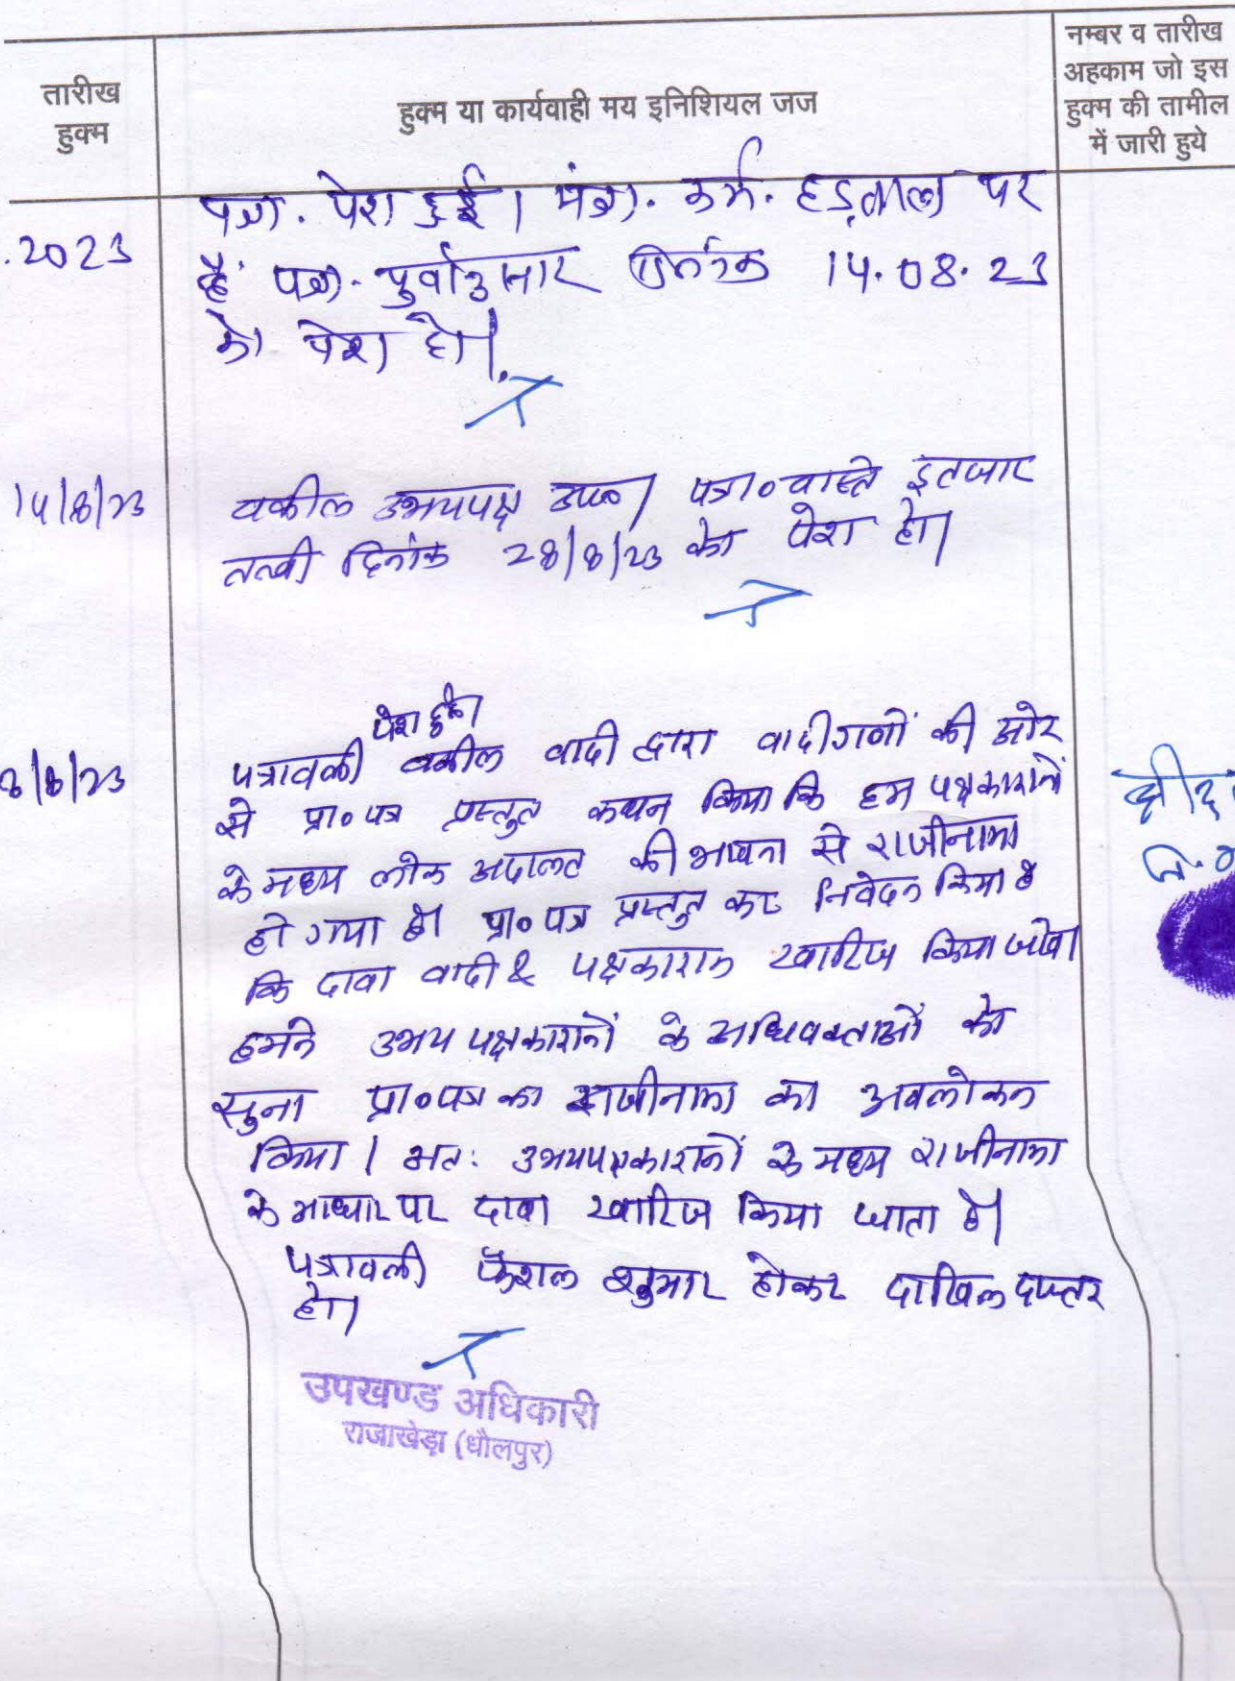 तारीख
हुक्म
हुक्म या कार्यवाही मय इनिशियल जज
नम्बर व तारीख
अहकाम जो इस
हुक्म की तामील
में जारी हुये
.2023
पत्रा. पेश हुई। मंत्रा. कर्म. हड़ताल पर
है पत्रा. पुर्वानुसार दिनांक 14.08.23
को पेश हो।
14/8/23
वकील उभयपक्ष उप०। पत्रा० वास्ते इंतजार
तलवी दिनांक 28/8/23 को पेश हो।
8/8/23
पेश हुई।
पत्रावली वकील वादी द्वारा वादीगणों की ओर
से प्रा० पत्र प्रस्तुत कथन किया कि हम पक्षकारानों
के मध्य लोक अदालत की भावना से राजीनामा
हो गया है। प्रा० पत्र प्रस्तुत कर निवेदन किया है
कि दावा वादी & पक्षकारान खारिज किया जावे।
हमने उभय पक्षकारानों के अधिवक्ताओं को
सुना प्रा० पत्र का राजीनामा का अवलोकन
किया। अतः उभयपक्षकारानों के मध्य राजीनामा
के आधार पर दावा खारिज किया जाता है।
पत्रावली फैशल शुमार होकर दाखिल दफ्तर
हो।
उपखण्ड अधिकारी
राजाखेड़ा (धौलपुर)